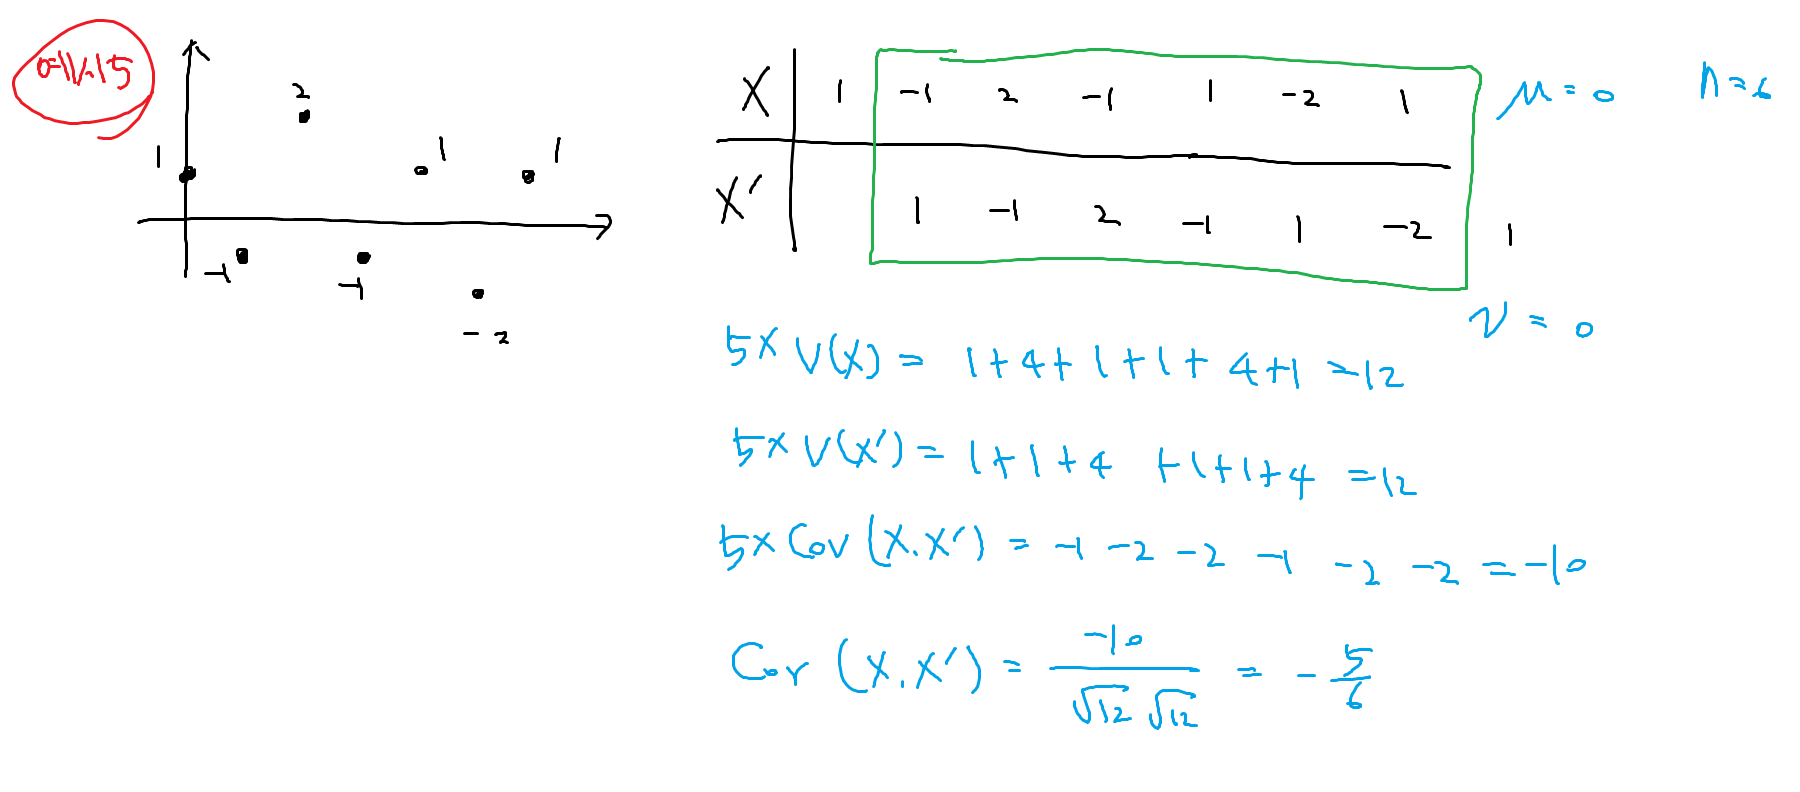 2
1
1
1
-1
-1
-2
X 1 -1 2 -1 1 -2 1 μ=0 n=6
X′ 1 -1 2 -1 1 -2 1
ν=0
5×V(X)=1+4+1+1+4+1=12
5×V(X′)=1+1+4+1+1+4=12
5×Cov(X.X′)=-1-2-2-1-2-2=-10
Cor(X.X′)=-10/√12√12=-5/6